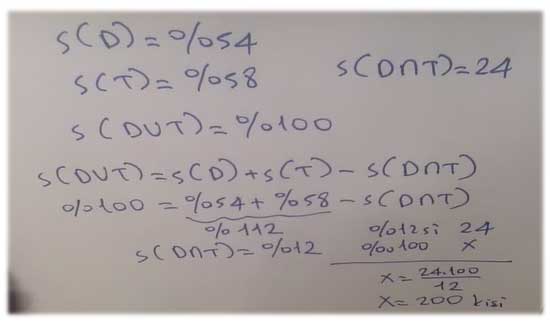 s(D) = %54
s(T) = %58
s(D∩T) = 24
s(D∪T) = %100
s(D∪T) = s(D) + s(T) - s(D∩T)
%100 = %54 + %58 - s(D∩T)
%112
s(D∩T) = %12
%12 si 24
%100 x
x = 24.100
12
x = 200 kisi